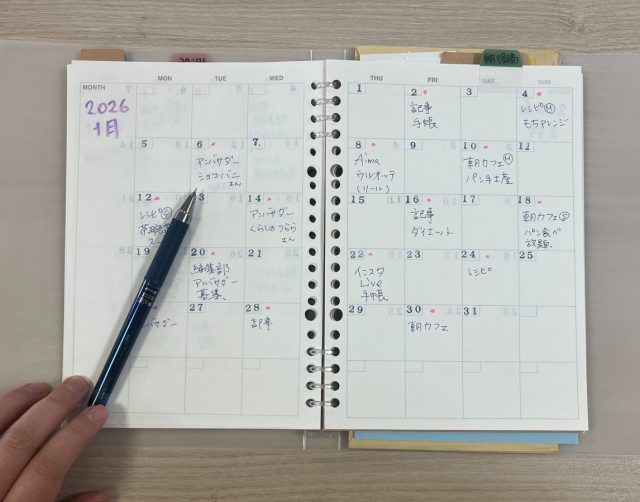 MONTH
MON
TUE
WED
THU
FRI
SAT
SUN
2026
1月
1
2
記事
手帳
3
4
レシピ
もちアレンジ
5
6
アンバサダー
ショコバニ
さん
7
8
Aima
ウルオッテ
(リール)
9
10
朝カフェ
パン手土産
11
12
レシピ
3
14
アンバサダー
くらしのつらら
さん
15
16
記事
ダイエット
17
18
朝カフェ
パン食べ
放題
19
20
編集部
アンバサダー
募集
21
22
インスタ
Live
手帳
23
24
レシピ
25
バサダー
27
28
記事
29
30
朝カフェ
31